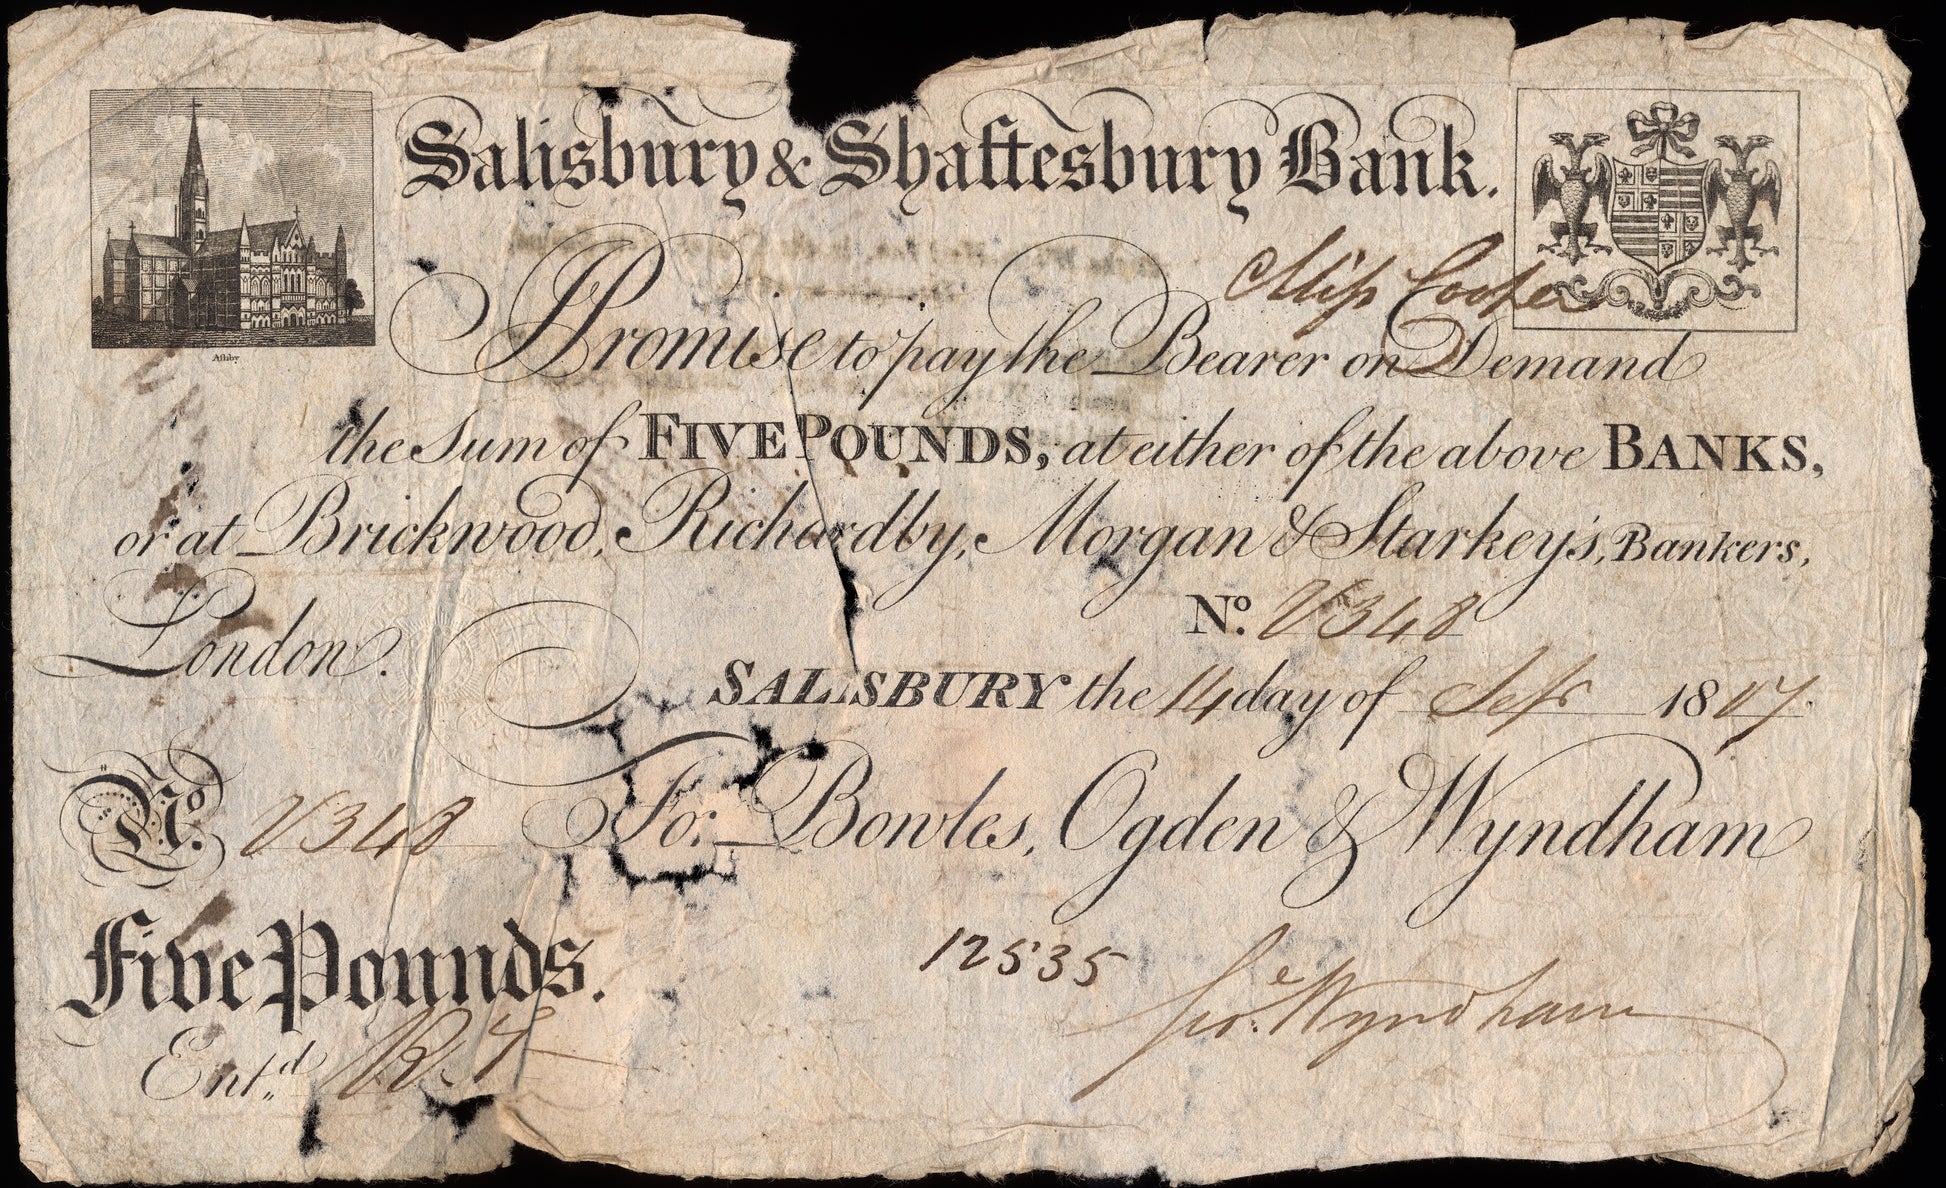 Salisbury & Shaftesbury Bank.
Ashby
Miss Cooper
I Promise to pay the Bearer on Demand
the Sum of FIVE POUNDS, at either of the above BANKS,
or at Brickwood, Richardby, Morgan & Starkey's, Bankers,
London.
No. V348
SALISBURY the 14 day of Sepr 1807.
No. V348 For Bowles, Ogden & Wyndham
Five Pounds.
12535
Geo:e Wyndham
Ent,,d R. T